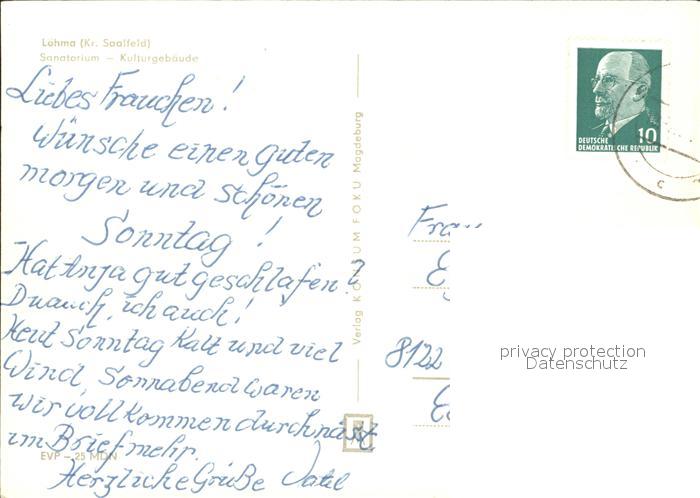 Löhma (Kr. Saalfeld)
Sanatorium – Kulturgebäude
Liebes Frauchen!
Wünsche einen guten
morgen und schönen
Sonntag!
Hat Anja gut geschlafen?
Du auch, ich auch!
Heut Sonntag Kalt und viel
Wind, Sonnabend waren
wir vollkommen durchnässt
im Brief mehr.
Herzliche Grüße
EVP – 25 MDN
Verlag KONSUM FOKU Magdeburg
DEUTSCHE
DEMOKRATISCHE REPUBLIK
10
c
Frau
E
8122
privacy protection
Datenschutz